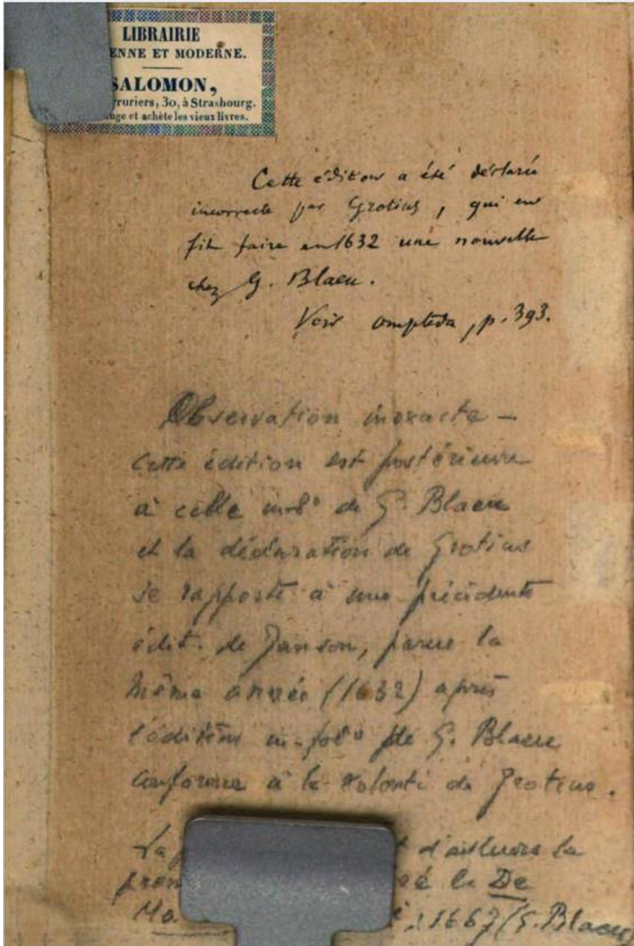 LIBRAIRIE
ENNE ET MODERNE.
SALOMON,
ruriers, 30, à Strasbourg.
ge et achète les vieux livres.
Cette édition a été déclarée
incorrecte par Grotius, qui en
fit faire en 1632 une nouvelle
chez G. Blaeu.
Voir ompteda, p. 393.
Observation inexacte —
Cette édition est postérieure
à celle in-8° de G. Blaeu
et la déclaration de Grotius
se rapporte à une précédente
édit. de Janson, parue la
même année (1632) après
l'édition in-fol° de G. Blaeu
conforme à la volonté de Grotius.
d'ailleurs la
De
1667 (G. Blaeu